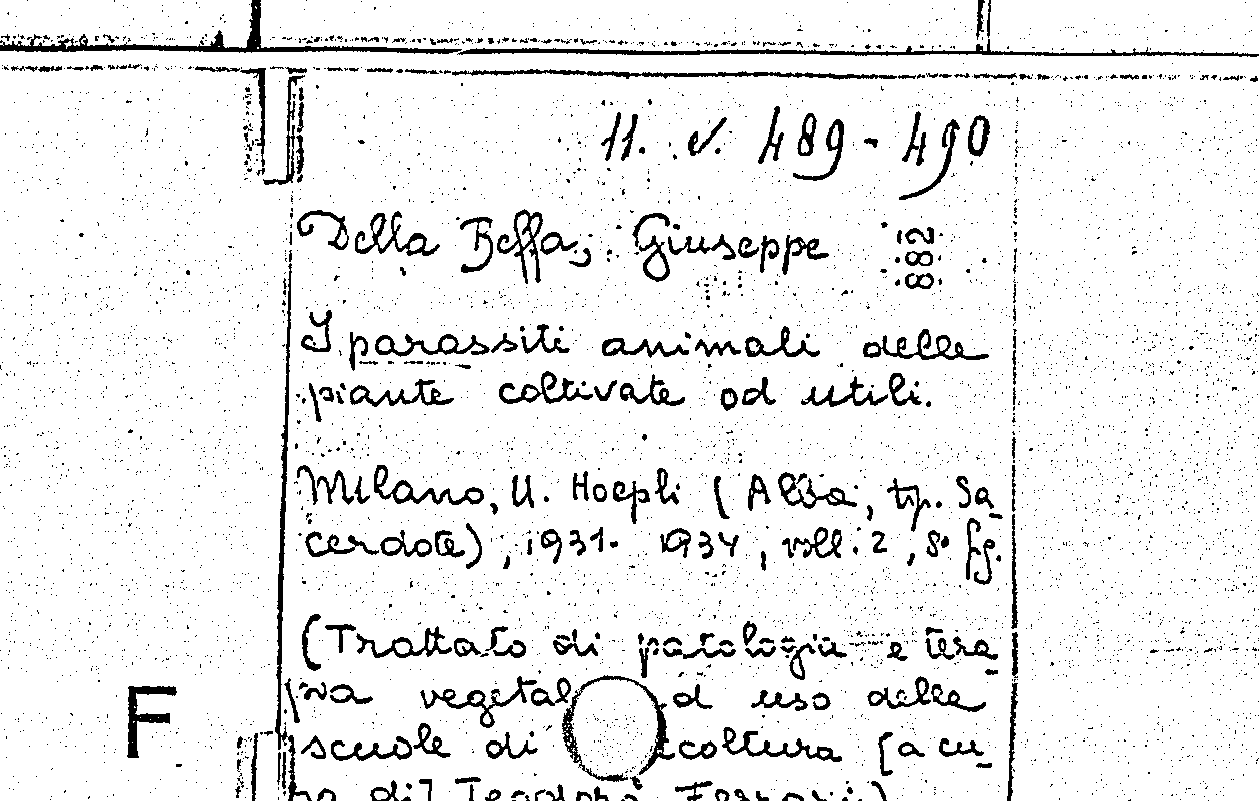 11. V. 489-490
Della Beffa, Giuseppe
882
I parassiti animali delle
piante coltivate od utili.
Milano, U. Hoepli (Alba, tip. Sa-
cerdote), 1931-1934, voll. 2, 8° fig.
(Trattato di patologia e tera-
vegetal d uso delle
F
scuole di coltura [a cu-
ra di] Teodoro Ferraris)